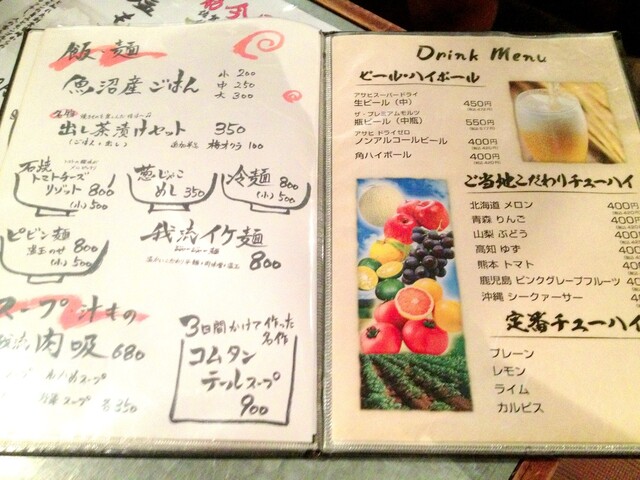 飯 麺
魚沼産ごはん 小 200
中 250
大 300
出し茶漬けセット 350
(ごはん+出し) 梅オクラ 100
石焼
トマトチーズ
リゾット 800
(小) 500
葱じゃこ
めし 350
冷麺 800
(小) 500
ピビン麺
800
(小) 500
我流イケ麺
800
スープ 汁もの
肉吸 680
わかめスープ
各350
3日間かけて作った
名作
コムタン
テールスープ
900
Drink Menu
ビール・ハイボール
アサヒスーパードライ
生ビール(中) 450円
ザ・プレミアムモルツ
瓶ビール(中瓶) 550円
アサヒ ドライゼロ
ノンアルコールビール 400円
角ハイボール 400円
ご当地こだわりチューハイ
北海道 メロン 400円
青森 りんご 400円
山梨 ぶどう 400
高知 ゆず 400
熊本 トマト 400
鹿児島 ピンクグレープフルーツ 400
沖縄 シークァーサー 400
定番チューハイ
プレーン
レモン
ライム
カルピス